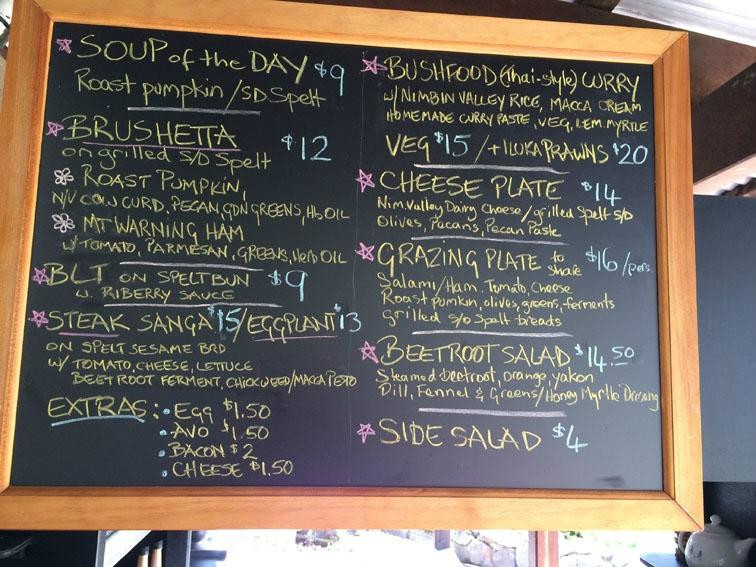 SOUP of the DAY $9
Roast pumpkin/SD Spelt
BRUSHETTA $12
on grilled S/D Spelt
ROAST PUMPKIN,
N/V COW CURD, PECAN, GDN GREENS, Hb OIL
MT WARNING HAM
W/TOMATO, PARMESAN, GREENS, Herb OIL
BLT ON SPELT BUN $9
w. RIBERRY SAUCE
STEAK SANGA $15/EGGPLANT $13
ON SPELT SESAME BRD
W/ TOMATO, CHEESE, LETTUCE
BEETROOT FERMENT, CHICKWEED/MACCA PESTO
EXTRAS: • Egg $1.50
• AVO $1.50
• BACON $2
• CHEESE $1.50
BUSHFOOD (Thai-style) CURRY
W/ NIMBIN VALLEY RICE, MACCA CREAM
HOMEMADE CURRY PASTE, VEG, LEM. MYRTLE
VEG $15 / + ILUKA PRAWNS $20
CHEESE PLATE $14
Nim. Valley Dairy Cheese/grilled Spelt S/D
Olives, Pecans, Pecan Paste
GRAZING PLATE to share $16/pers
Salami/Ham, Tomato, Cheese
Roast pumkin, olives, greens, ferments
Grilled S/D Spelt breads
BEETROOT SALAD $14.50
Steamed beetroot, orange, yakon
Dill, Fennel & Greens/Honey Myrtle Dressing
SIDE SALAD $4